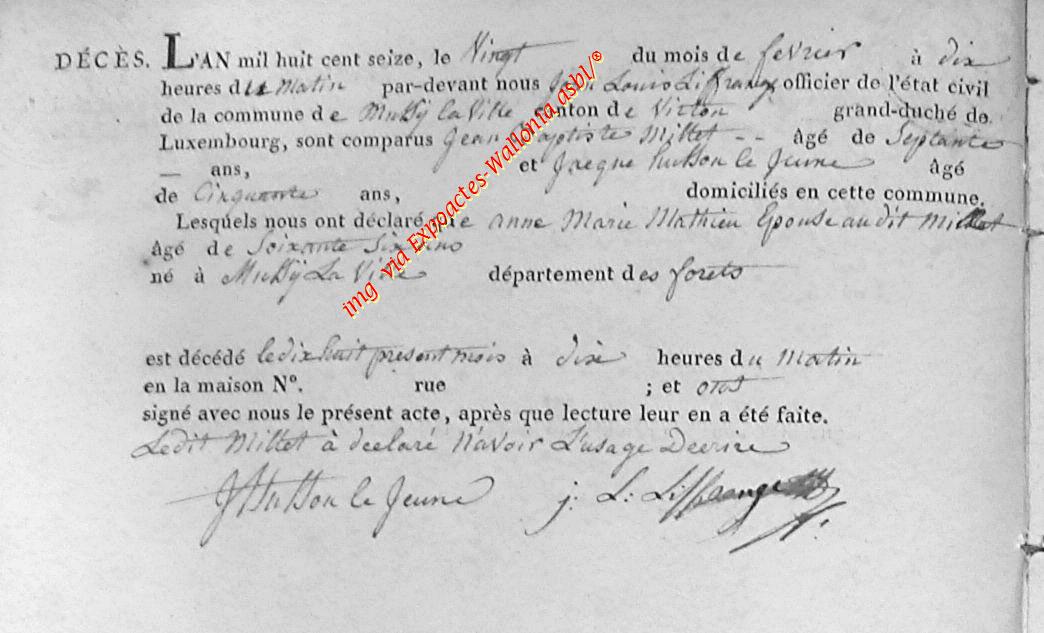 DÉCÈS. L'AN mil huit cent seize, le Vingt du mois de fevrier à dix
heures du Matin par-devant nous Jean Louis Liffrange officier de l'état civil
de la commune de Mussÿ la Ville canton de Virton grand-duché de
Luxembourg, sont comparus Jean Baptiste Millet -- âgé de Septante
— ans, et Jacque husson le Jeune âgé
de Cinquante ans, domiciliés en cette commune.
Lesquels nous ont déclaré que anne Marie Mathieu Epouse audit Millet
âgé de Soixante Six ans
né à Mussÿ La Ville département des forets
est décédé le dix huit present mois à dix heures du Matin
en la maison N°. rue ; et ont
signé avec nous le présent acte, après que lecture leur en a été faite.
Ledit Millet à declaré N'avoir L'usage Decrire
JHusson le Jeune j: L: Liffrange
img via Expoactes-Wallonia asbl/®